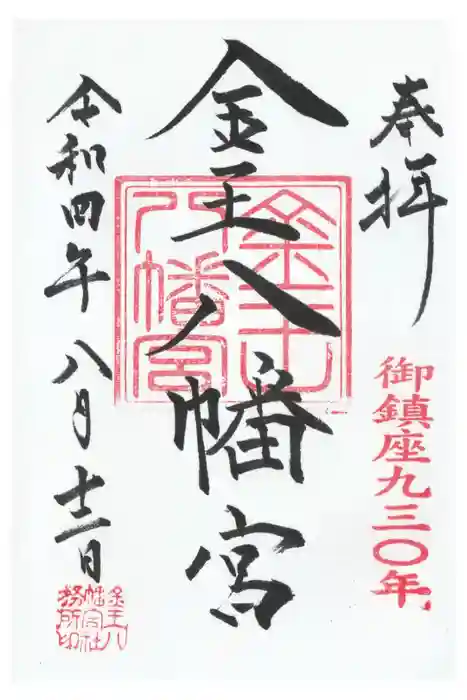 奉拝
御鎮座九三〇年
金王八幡宮
金王
八幡宮
令和四年八月十二日
金王八
幡宮社
務所印